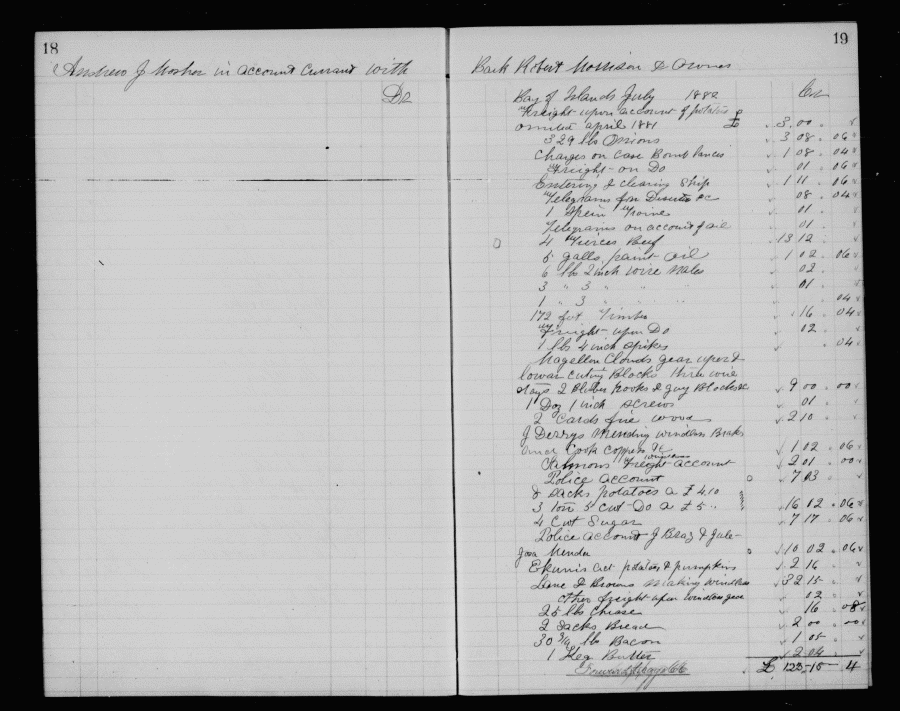 18
Andrew J Mosher in account Currant with
Dr
19
Bark Robert Morrison & Owners
Bay of Islands July 1882 Cr
Freight upon account of potatoes
omited april 1881 £ 3 00
329 lbs Onions 3 08 06
Charges on Case Bomb lances 1 08 04
Freight on Do 01 06
Entering & clearing Ship 1 11 06
Telegrams for Deserters &c 08 04
1 01
Telegrams on account of oil 01
4 Tierces Beef 13 12
5 galls paint oil 1 02 06
6 lbs 2 inch wire Nales 02
3 " 3 " " " 01
1 " 3 " " " 04
172 feet Timber 16 04
Freight upon Do 02
1 lbs 4 inch Spikes 04
Magellen Clouds gear uper &
lowar cuting Blocks three wire
stays 2 Blubber hooks & guy Blocks &c 9 00 00
1 Doz 1 inch screws 01
2 Cords fire wood 2 10
J Derrys Mending windlass Braks
Cook Coppers &c 1 02 06
windlass
Freight account 2 01 00
Police account 7 03
8 sacks potatoes a £ 4.10
3 ton 5 Cwt Do a £ 5 16 12 06
4 Cwt Sugar 7 17 06
Police account J Braz &
10 02 06
potatoes & pumpkins 2 16
Lane & Browns Making windlass 32 15
other freight upon windlass gear 02
25 lbs Cheese 16 08
2 Sacks Bread 2 00 00
30 3/4 lbs Bacon 1 05
1 Keg Butter 2 04
£ 125 15 4